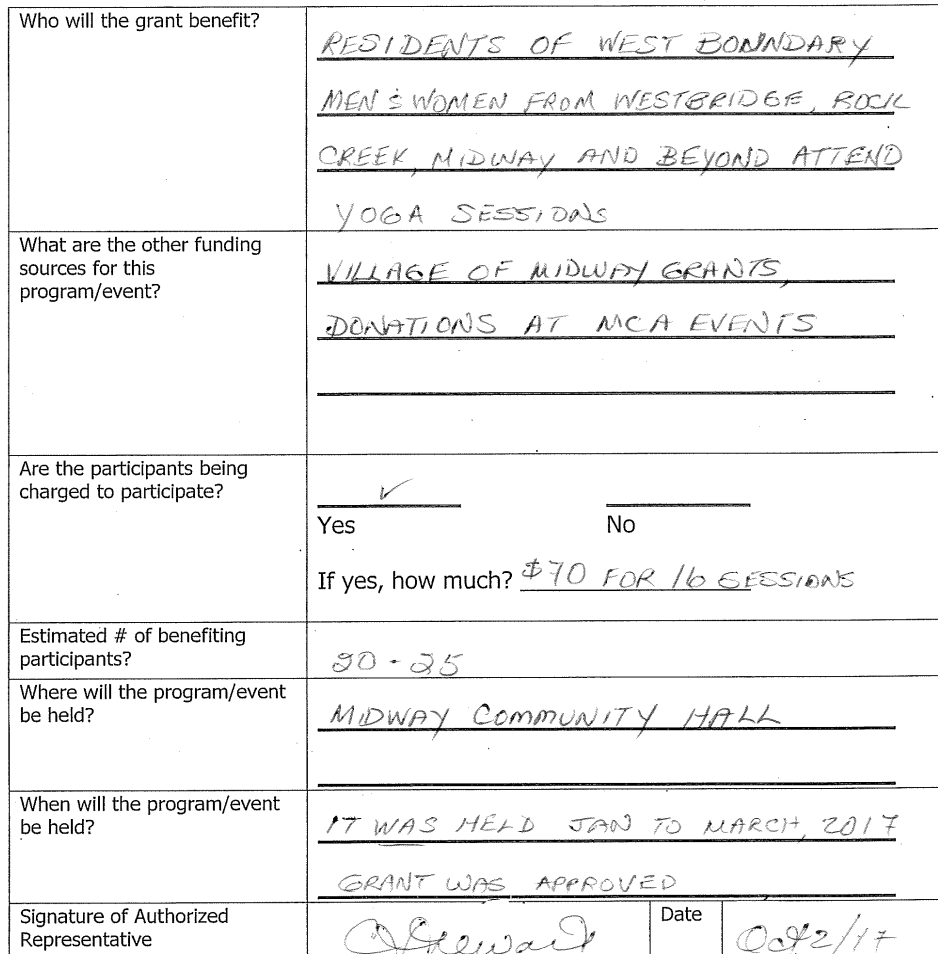 Who will the grant benefit?
RESIDENTS OF WEST BONNDARY
MEN & WOMEN FROM WESTBRIDGE, ROCK
CREEK, MIDWAY AND BEYOND ATTEND
YOGA SESSIONS
What are the other funding
sources for this
program/event?
VILLAGE OF MIDWAY GRANTS,
DONATIONS AT MCA EVENTS
Are the participants being
charged to participate?
✓
Yes No
If yes, how much? $70 FOR 16 SESSIONS
Estimated # of benefiting
participants?
20 - 25
Where will the program/event
be held?
MIDWAY COMMUNITY HALL
When will the program/event
be held?
IT WAS HELD JAN TO MARCH, 2017
GRANT WAS APPROVED
Signature of Authorized
Representative
Date
Oct 2/17